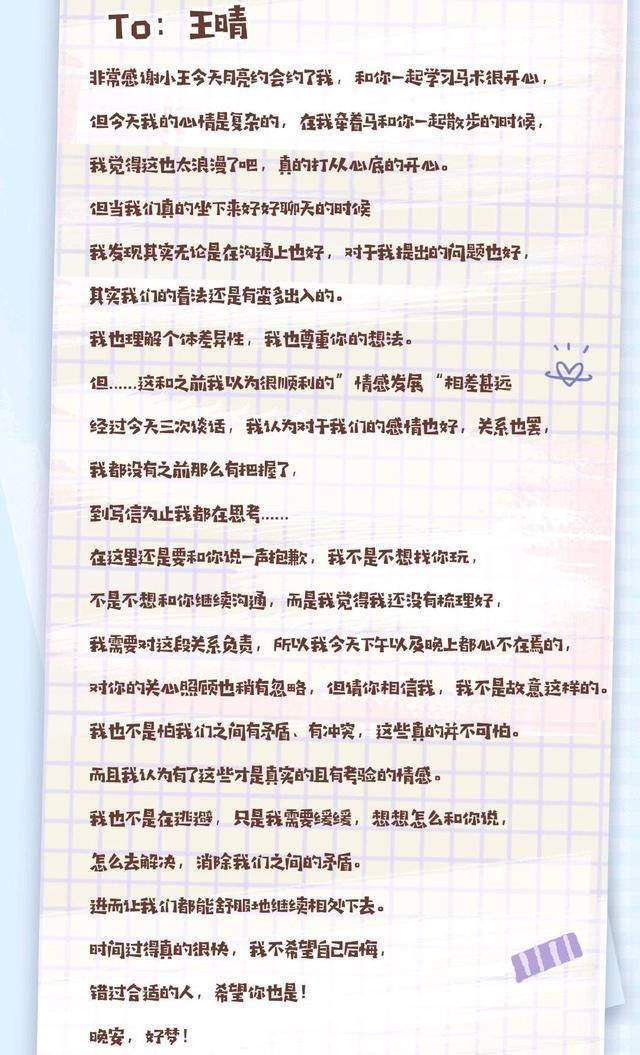 To：王晴
非常感谢小王今天月亮约会约了我，和你一起学习马术很开心，
但今天我的心情是复杂的，在我牵着马和你一起散步的时候，
我觉得这也太浪漫了吧，真的打从心底的开心。
但当我们真的坐下来好好聊天的时候
我发现其实无论是在沟通上也好，对于我提出的问题也好，
其实我们的看法还是有蛮多出入的。
我也理解个体差异性，我也尊重你的想法。
但......这和之前我以为很顺利的”情感发展“相差甚远
经过今天三次谈话，我认为对于我们的感情也好，关系也罢，
我都没有之前那么有把握了，
到写信为止我都在思考......
在这里还是要和你说一声抱歉，我不是不想找你玩，
不是不想和你继续沟通，而是我觉得我还没有梳理好，
我需要对这段关系负责，所以我今天下午以及晚上都心不在焉的，
对你的关心照顾也稍有忽略，但请你相信我，我不是故意这样的。
我也不是怕我们之间有矛盾、有冲突，这些真的并不可怕。
而且我认为有了这些才是真实的且有考验的情感。
我也不是在逃避，只是我需要缓缓，想想怎么和你说，
怎么去解决，消除我们之间的矛盾。
进而让我们都能舒服地继续相处下去。
时间过得真的很快，我不希望自己后悔，
错过合适的人，希望你也是！
晚安，好梦！